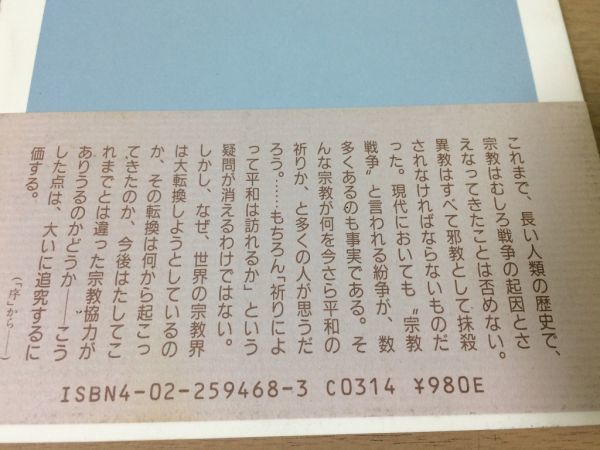 これまで、長い人類の歴史で、
宗教はむしろ戦争の起因とさ
えなってきたことは否めない。
異教はすべて邪教として抹殺
されなければならないものだ
った。現代においても〝宗教
戦争〟と言われる紛争が、数
多くあるのも事実である。そ
んな宗教が何を今さら平和の
祈りか、と多くの人が思うだ
ろう。……もちろん「祈りによ
って平和は訪れるか」という
疑問が消えるわけではない。
しかし、なぜ、世界の宗教界
は大転換しようとしているの
か、その転換は何から起こっ
てきたのか、今後はたしてこ
れまでとは違った宗教協力が
ありうるのかどうか——こう
した点は、大いに追究するに
価する。
(「序」から——)
ISBN4-02-259468-3 C0314 ¥980E